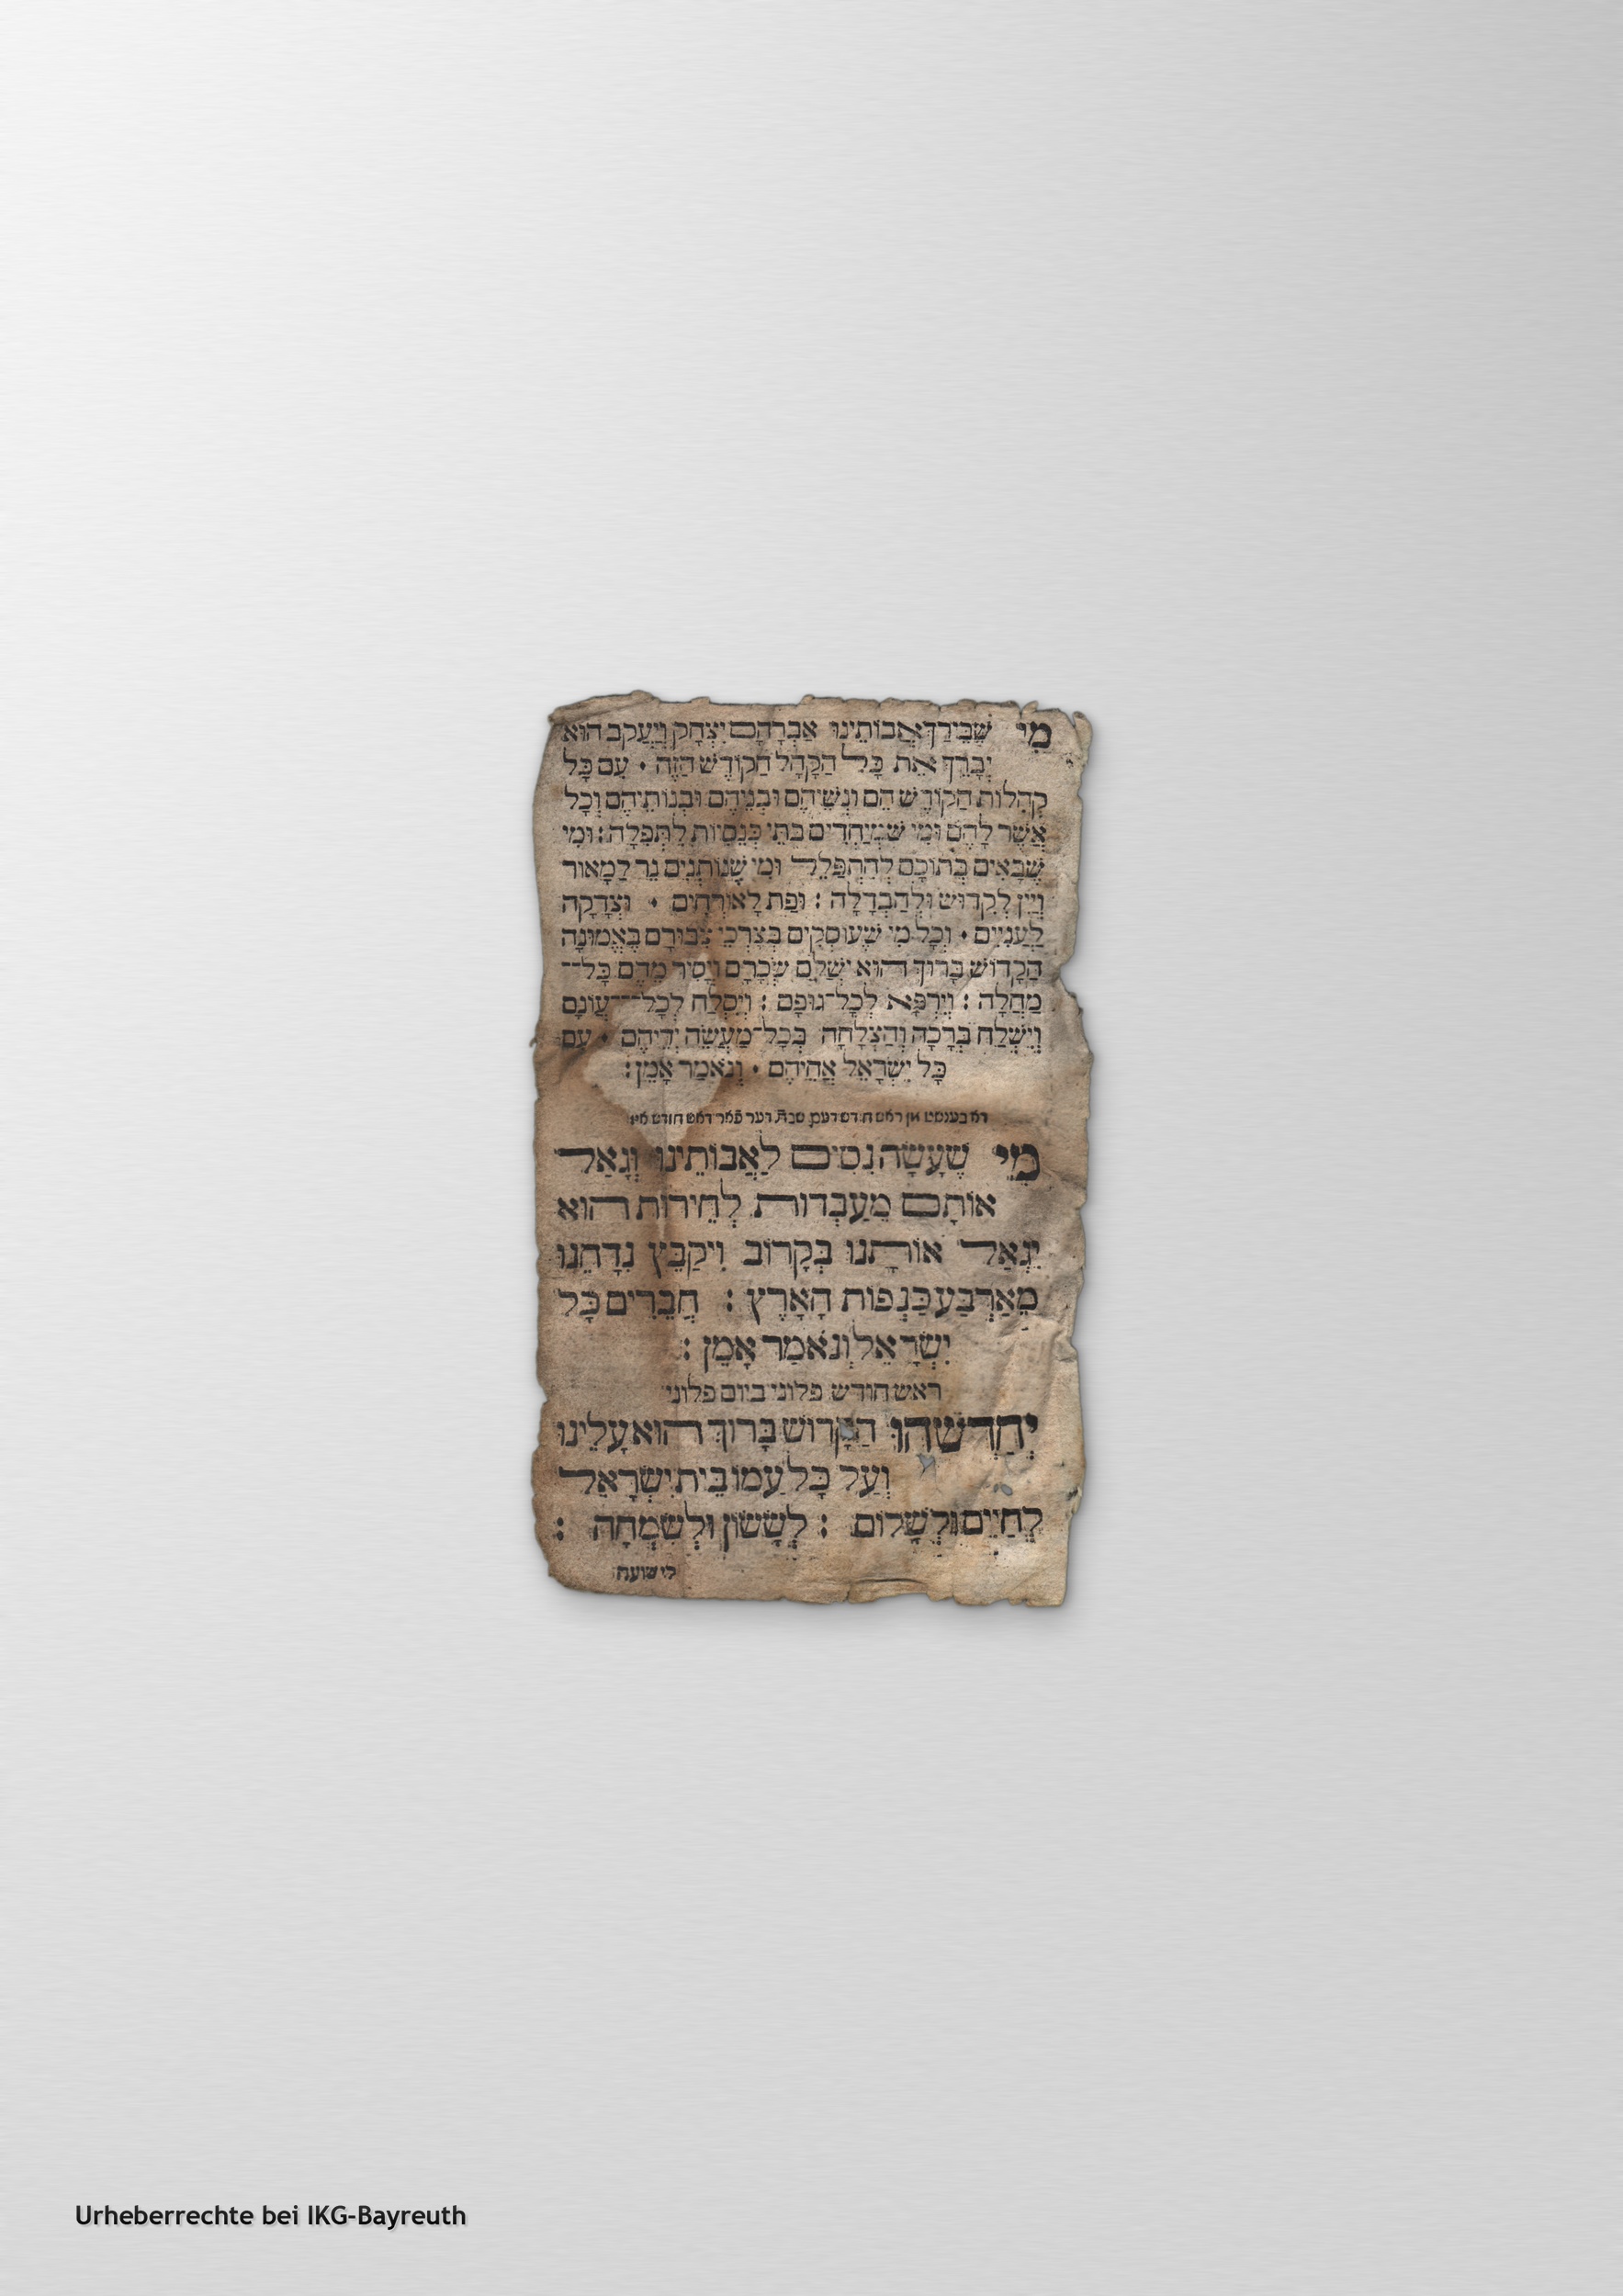 מִי שֶׁבֵּירַךְ אֲבוֹתֵינוּ אַבְרָהָם יִצְחָק וְיַעֲקֹב הוּא
יְבָרֵךְ אֶת כָּל הַקָּהָל הַקּוֹדֶשׁ הַזֶּה • עִם כָּל
קְהִלּוֹת הַקּוֹדֶשׁ הֵם וּנְשֵׁיהֶם וּבְנֵיהֶם וּבְנוֹתֵיהֶם וְכָל
אֲשֶׁר לָהֶם וּמִי שֶׁמְּיַחֲדִים בָּתֵּי כְּנֵסִיּוֹת לִתְפִלָּה : וּמִי
שֶׁבָּאִים בְּתוֹכָם לְהִתְפַּלֵּל וּמִי שֶׁנּוֹתְנִים נֵר לַמָּאוֹר
וְיַיִן לְקִדּוּשׁ וּלְהַבְדָּלָה : וּפַת לָאוֹרְחִים • וּצְדָקָה
לַעֲנִיִּים • וְכָל מִי שֶׁעוֹסְקִים בְּצָרְכֵי צִבּוּרָם בֶּאֱמוּנָה
הַקָּדוֹשׁ בָּרוּךְ הוּא יְשַׁלֵּם שְׂכָרָם וְיָסִיר מֵהֶם כָּל־
מַחֲלָה : וְיִרְפָּא לְכָל־גּוּפָם : וְיִסְלַח לְכָל־עֲוֹנָם
וְיִשְׁלַח בְּרָכָה וְהַצְלָחָה בְּכָל־מַעֲשֵׂה יְדֵיהֶם • עִם
כָּל יִשְׂרָאֵל אֲחֵיהֶם • וְנֹאמַר אָמֵן :
דא בענטשט מן ראש חודש דעם שבת דער פאר ראש חודש איז
מִי שֶׁעָשָׂה נִסִּים לַאֲבוֹתֵינוּ וְגָאַל
אוֹתָם מֵעַבְדוּת לְחֵירוּת הוּא
יִגְאַל אוֹתָנוּ בְּקָרוֹב וִיקַבֵּץ נִדָּחֵנוּ
מֵאַרְבַּע כַּנְפוֹת הָאָרֶץ : חֲבֵרִים כָּל
יִשְׂרָאֵל וְנֹאמַר אָמֵן :
ראש חודש פלוני ביום פלוני
יְחַדְּשֵׁהוּ הַקָּדוֹשׁ בָּרוּךְ הוּא עָלֵינוּ
וְעַל כָּל עַמּוֹ בֵּית יִשְׂרָאֵל
לְחַיִּים וּלְשָׁלוֹם : לְשָׂשׂוֹן וּלְשִׂמְחָה :
לישועה
Urheberrechte bei IKG-Bayreuth